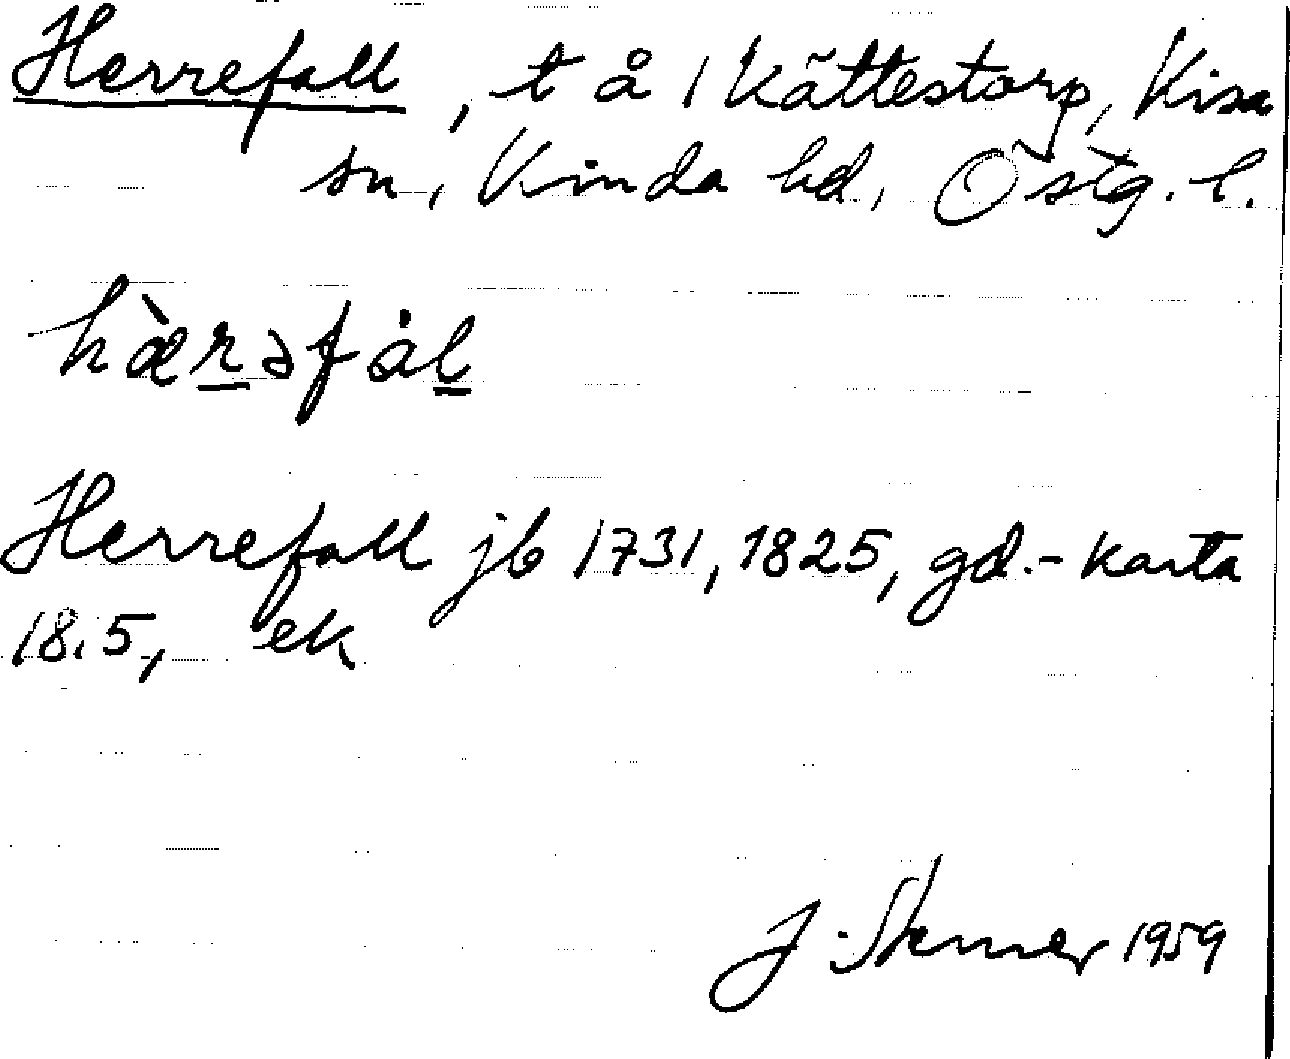 Herrefall, t å 1 Kättestorp, Kisa
sn, Kinda hd, Östg. l.
hæ̀rəfȧl
Herrefall jb 1731, 1825, gd.-karta
1815, ek
J. 1959